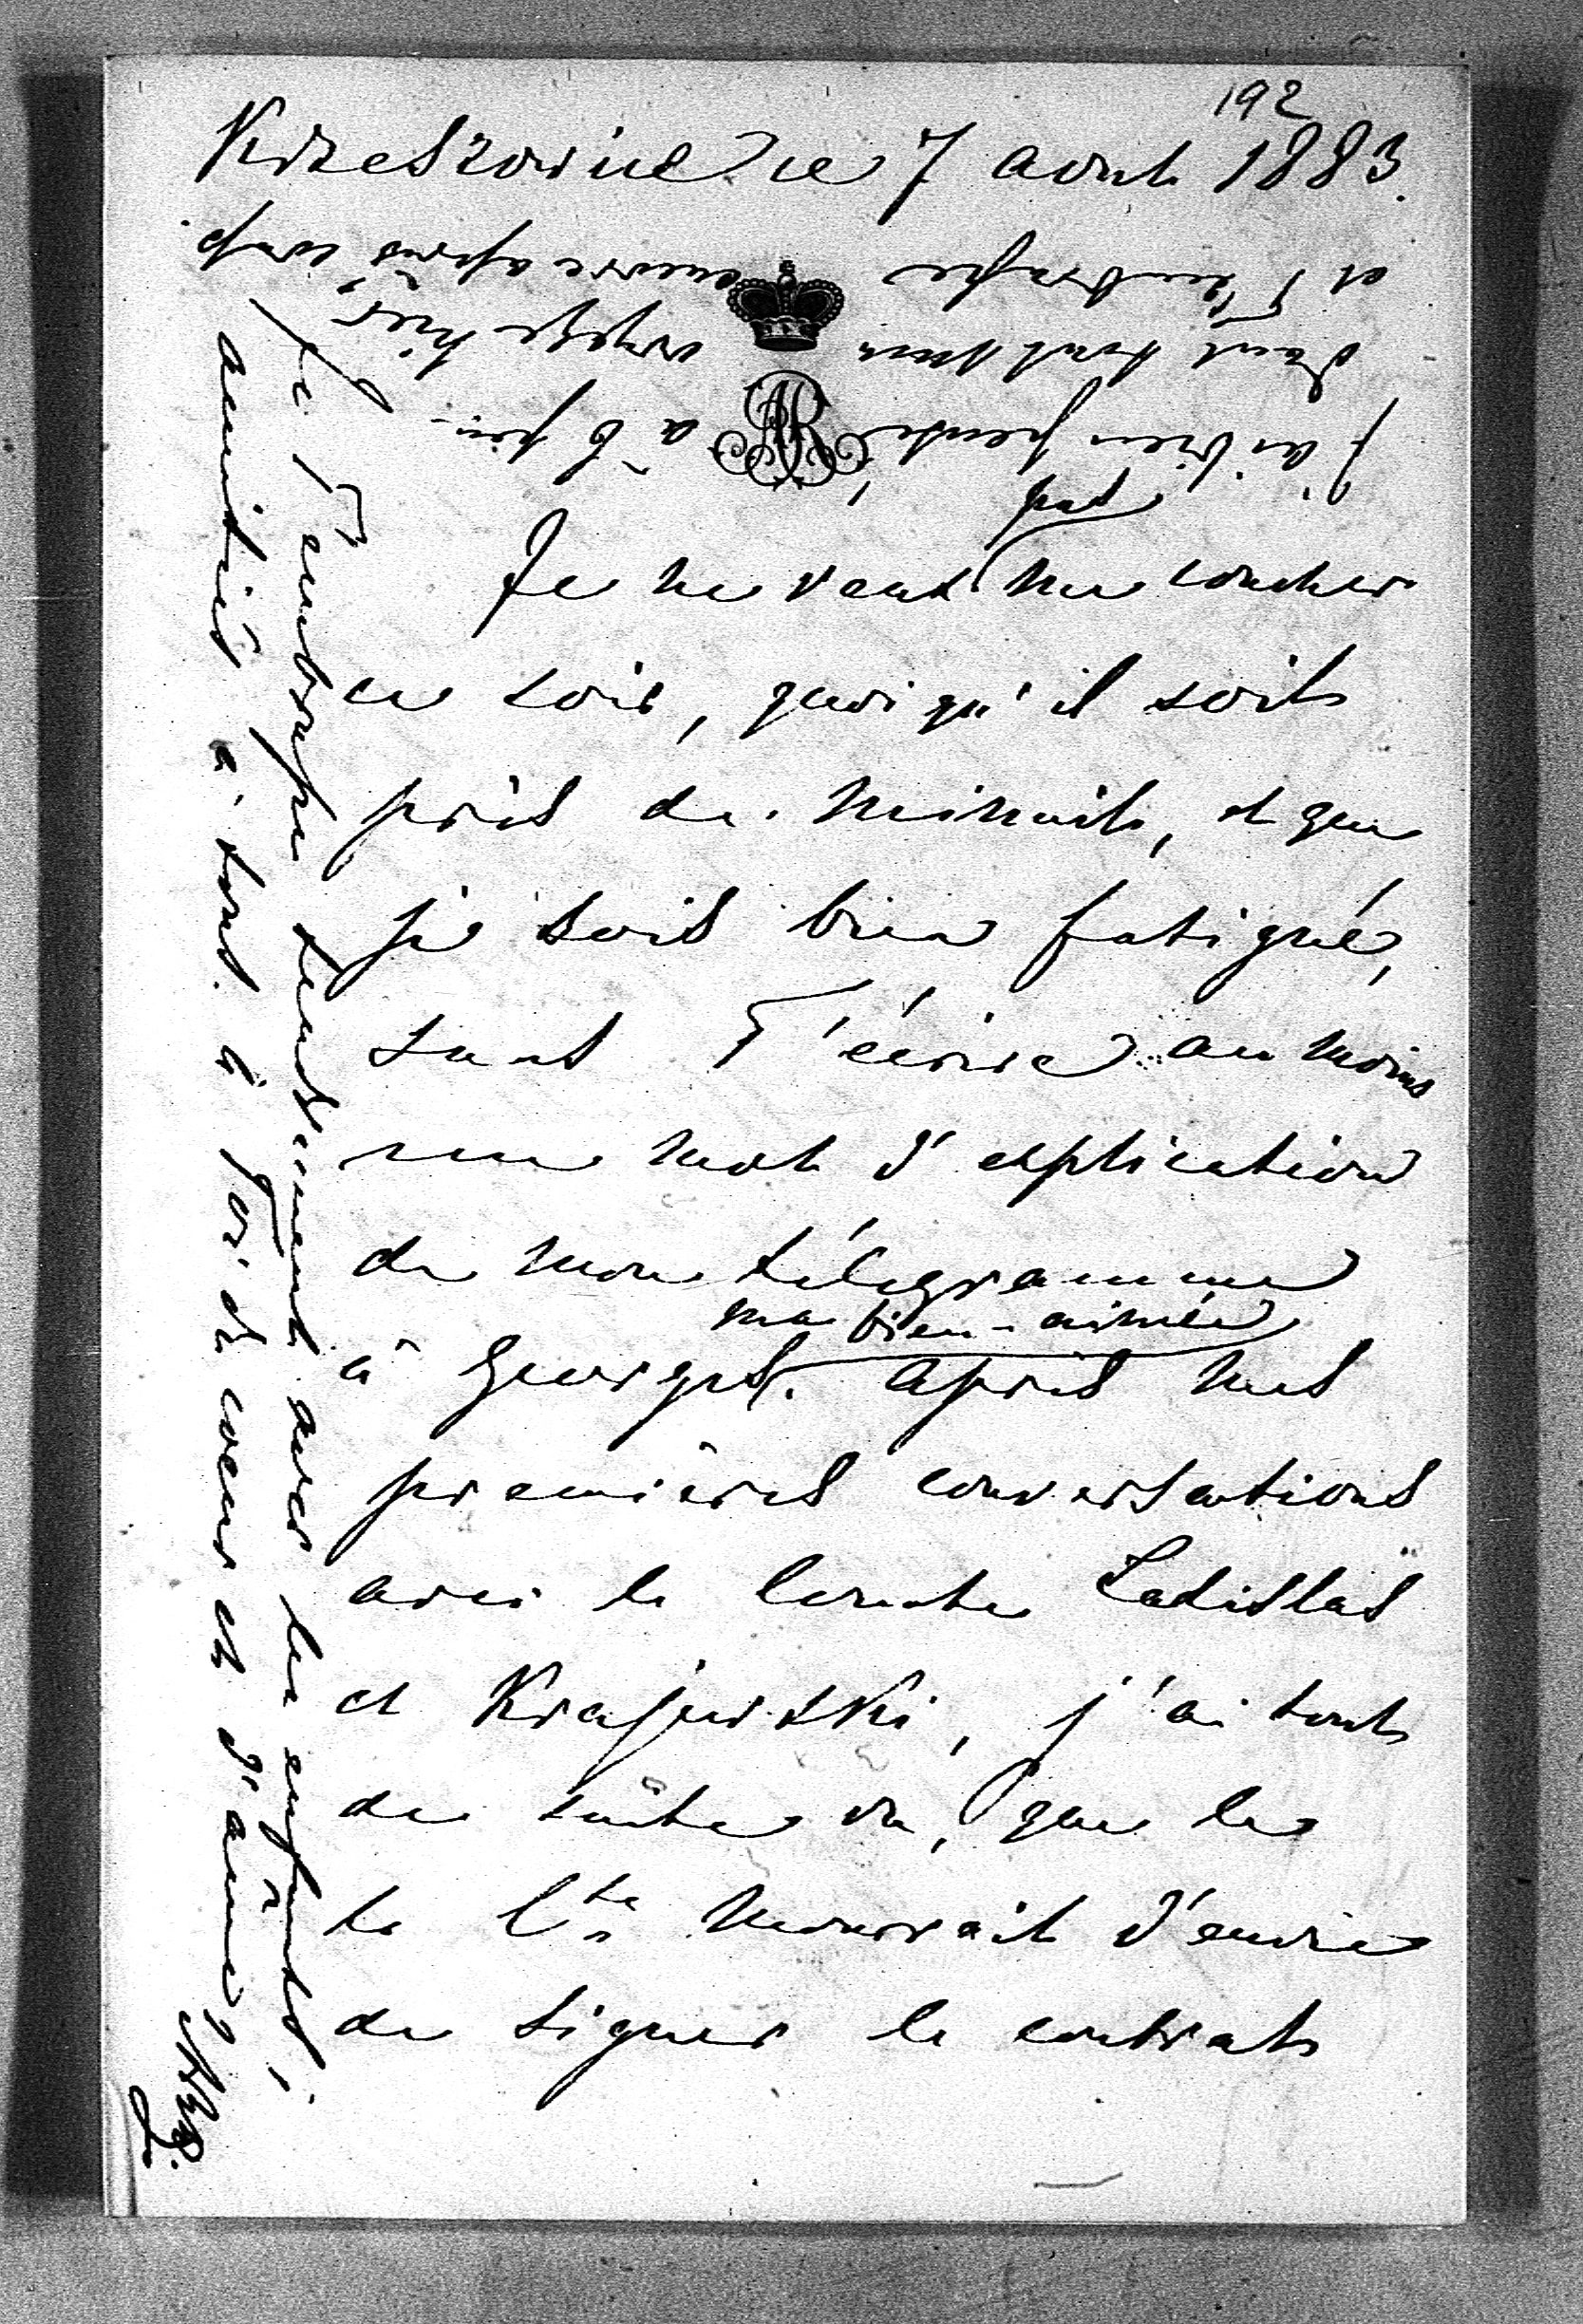 192
Krzeszowice le 7 aout 1883.
Je ne veux pas me coucher
ce soir, quoiqu'il soit
près de minuit, et que
je sois bien fatigué,
sans T'écrire au moins
un mot d'explication
de mon télégramme
à Georges, ma bien-aimée. Après mes
premières conversations
avec le Comte Ladislas
et Krajewski, j'ai tout
de suite vu, que le
le Cte mourrait d'envie
de signer le contrat
J'ai bien pensé à
dant tout mon voyage hier
et T'embrasse encore après coup.
AR
Je T'embrasse tendrement avec les enfants,
amitiés à tous. à Toi de coeur et d'âme,